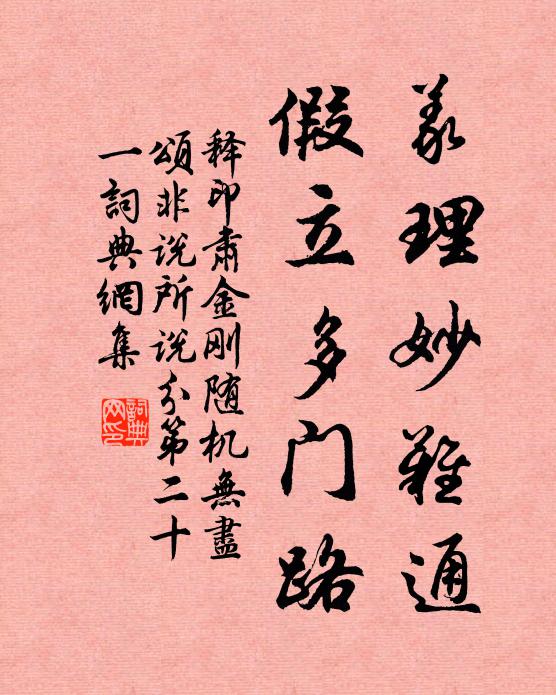 義理妙難通
假立多门路
释印肃金刚随机無盡
頌非说所说分第二十
一詞典網集
詞典网印